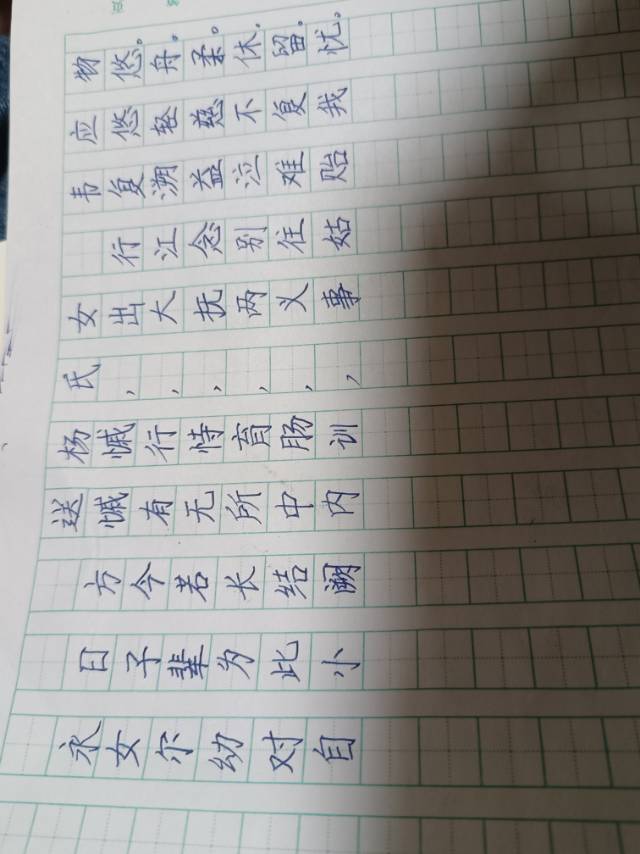 送杨氏女 韦应物
永日方慽慽,出行复悠悠。
女子今有行,大江溯轻舟。
尔辈若无恃,抚念益慈柔。
幼为长所育,两别泣不休.
对此结中肠,义往难复留。
自小阙内训,事姑贻我忧。